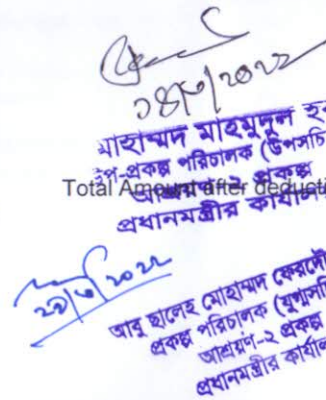 ১৪/৩/২০২২
মোহাম্মদ মাহমুদুল হ
উপ-প্রকল্প পরিচালক (উপসচি
Total Amount after deducti
আশ্রয়ণ-২ প্রকল্প
প্রধানমন্ত্রীর কার্যাল
২০২২
আবু ছালেহ মোহাম্মদ ফেরদৌ
প্রকল্প পরিচালক (যুগ্মসচি
আশ্রয়ণ-২ প্রকল্প
প্রধানমন্ত্রীর কার্যাল